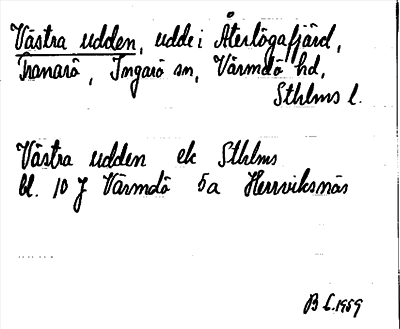 Västra udden, udde i Återlögafjärd,
Tranarö, Ingarö sn, Värmdö hd,
Sthlms l.
Västra udden ek Sthlms
bl. 10 J Värmdö 5a Herrviksnäs
1959